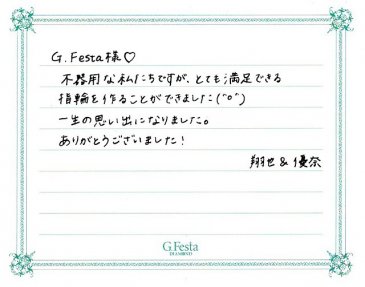 G.Festa様♡
不器用な私たちですが、とても満足できる
指輪を作ることができました(^o^)
一生の思い出になりました。
ありがとうございました!
翔也&優奈
G.Festa
DIAMOND